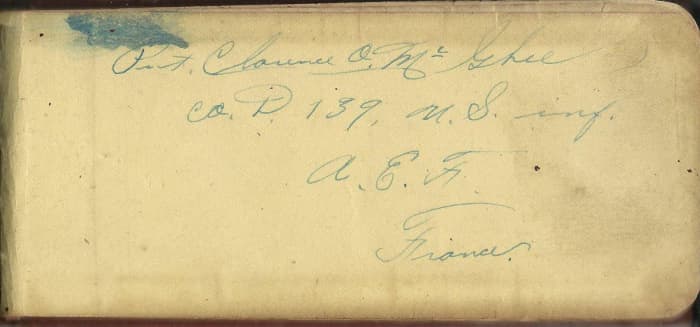 Pvt. Clarence O. Mc Ghee
Co. D. 139, U. S. inf.
A. E. F.
France.